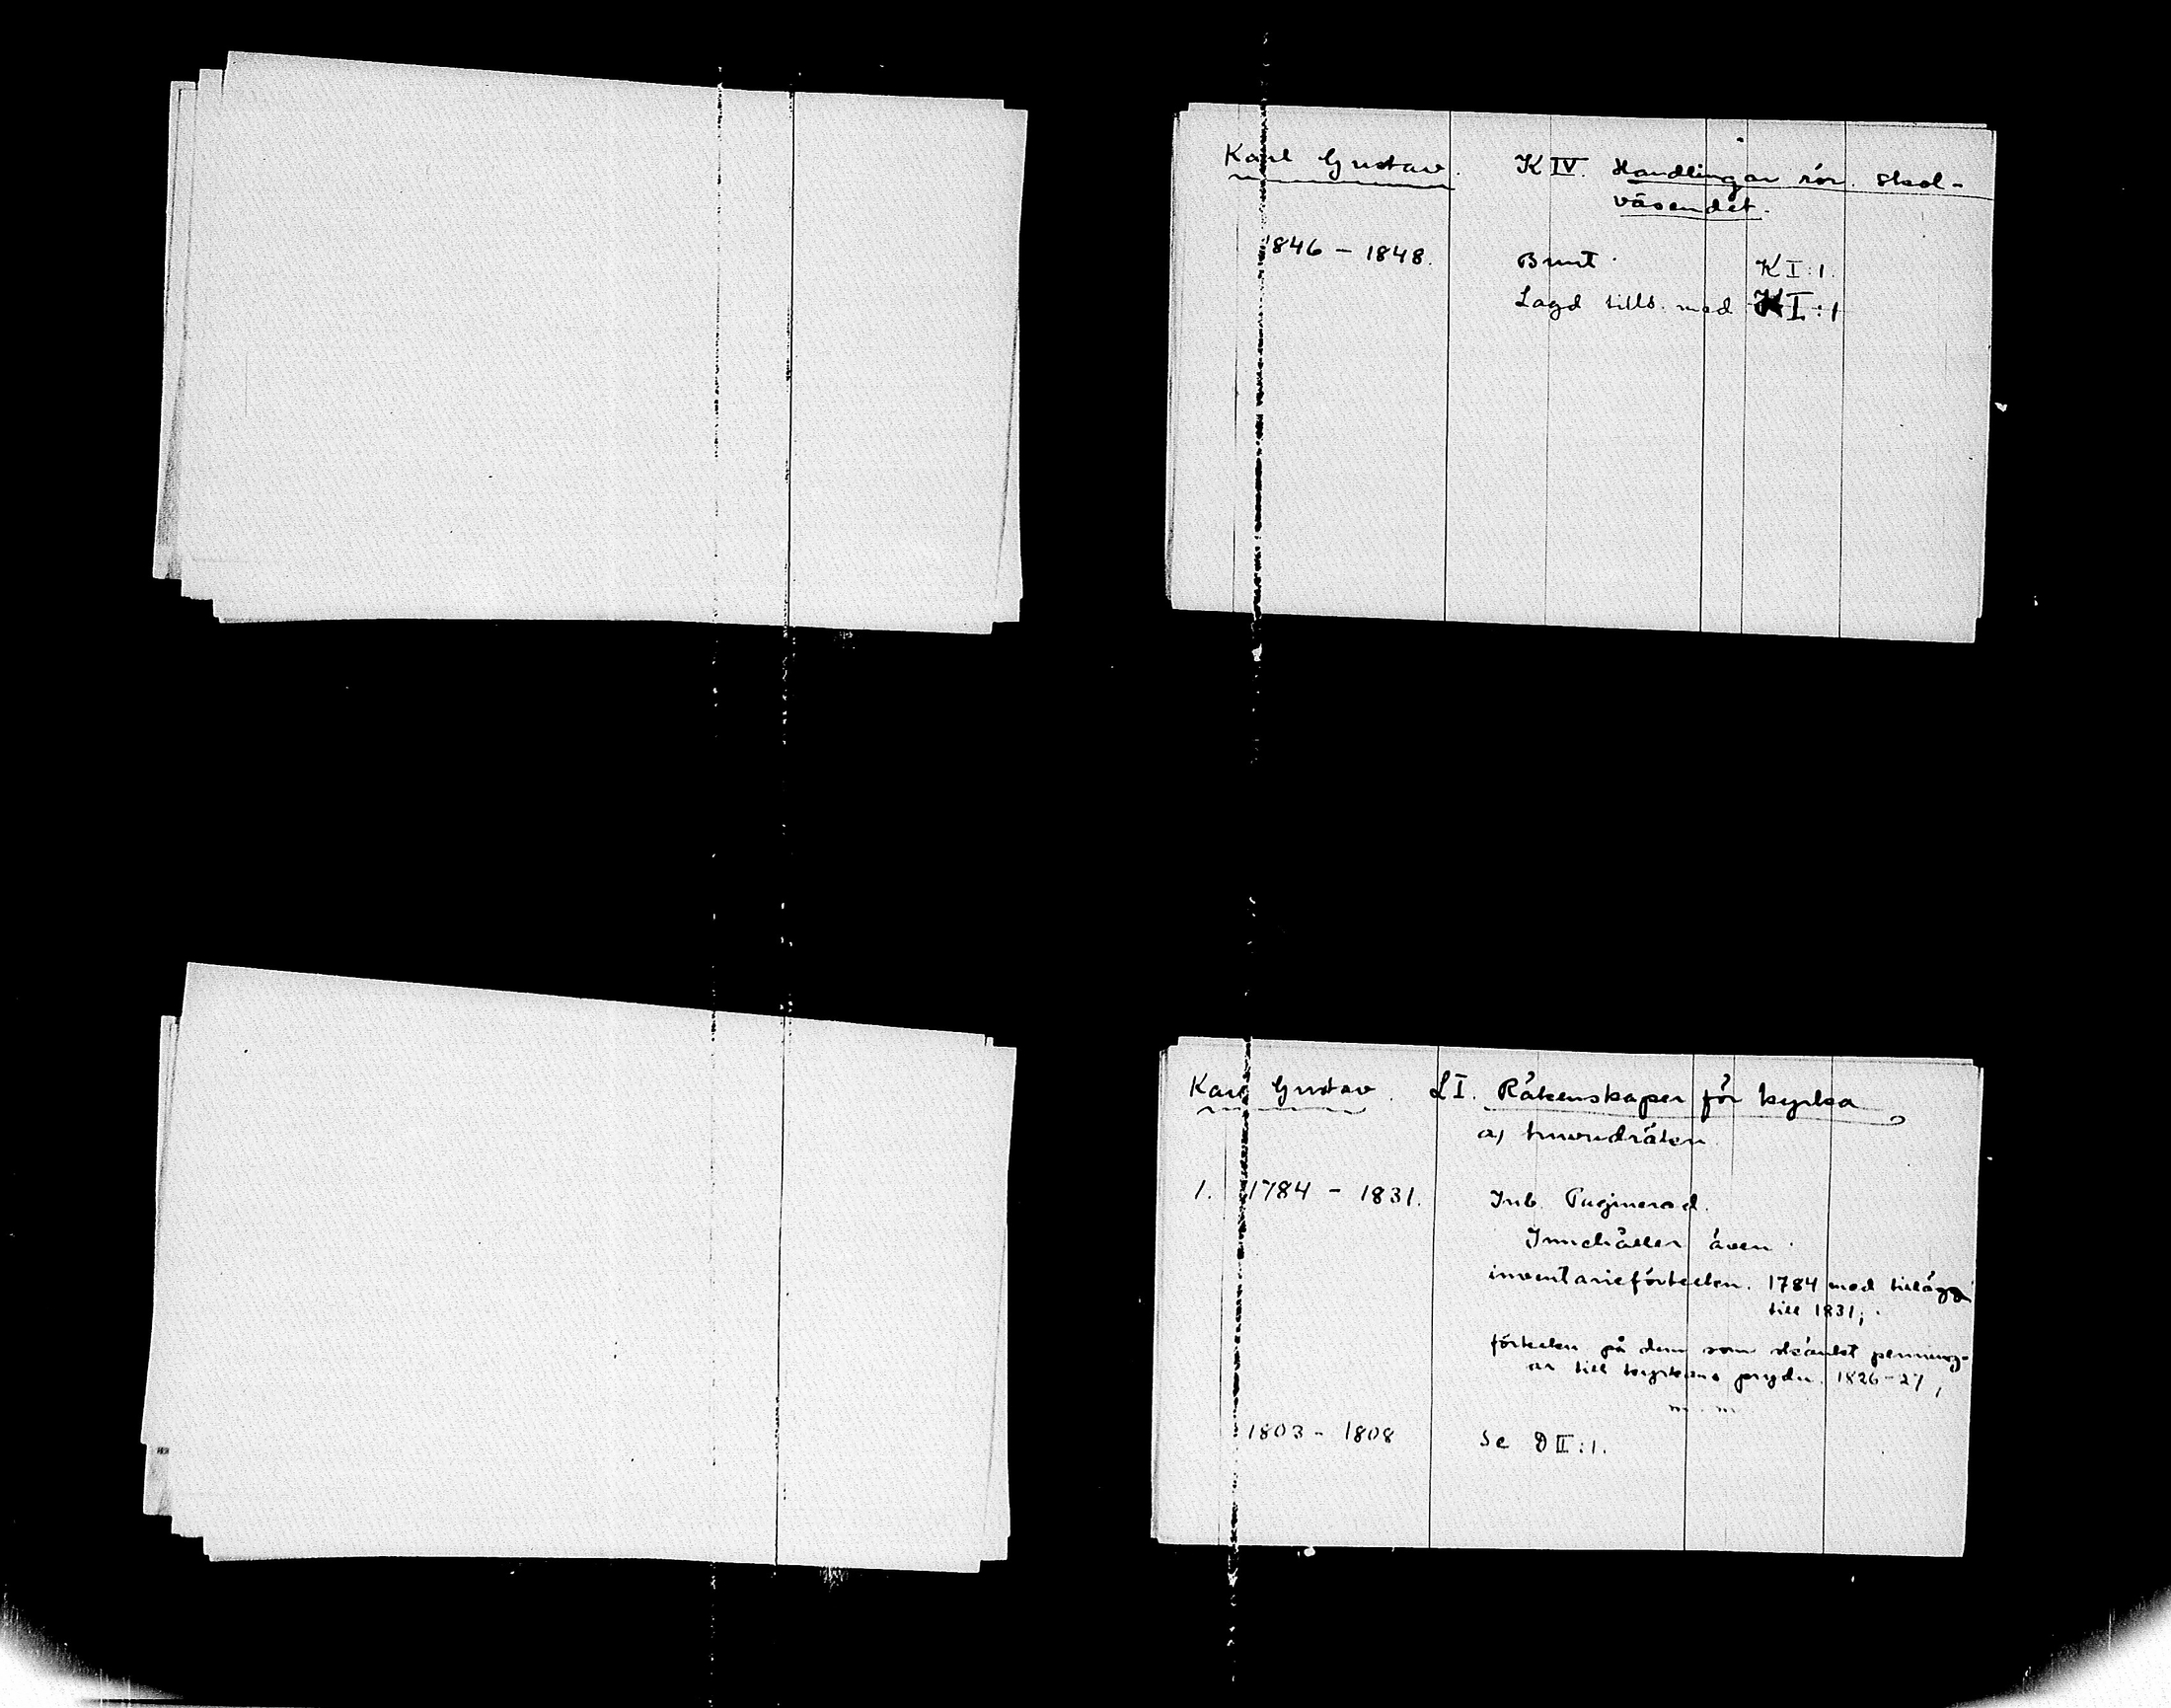 Karl Gustav. K IV. Handlingar rör. skol-
väsendet.
1846 – 1848. Bunt K I:1.
Lagd tills. med K I:1
Karl Gustav. L I. Räkenskaper för kyrka
a) huvudräken.
1. 1784 – 1831. Inb. Paginerad.
Innehåller även
inventarieförteckn. 1784 med tillägg
till 1831;
förteckn på dem som skänkt penning-
ar till kyrkans prydn. 1826–27,
m. m.
1803 – 1808 Se D II:1.